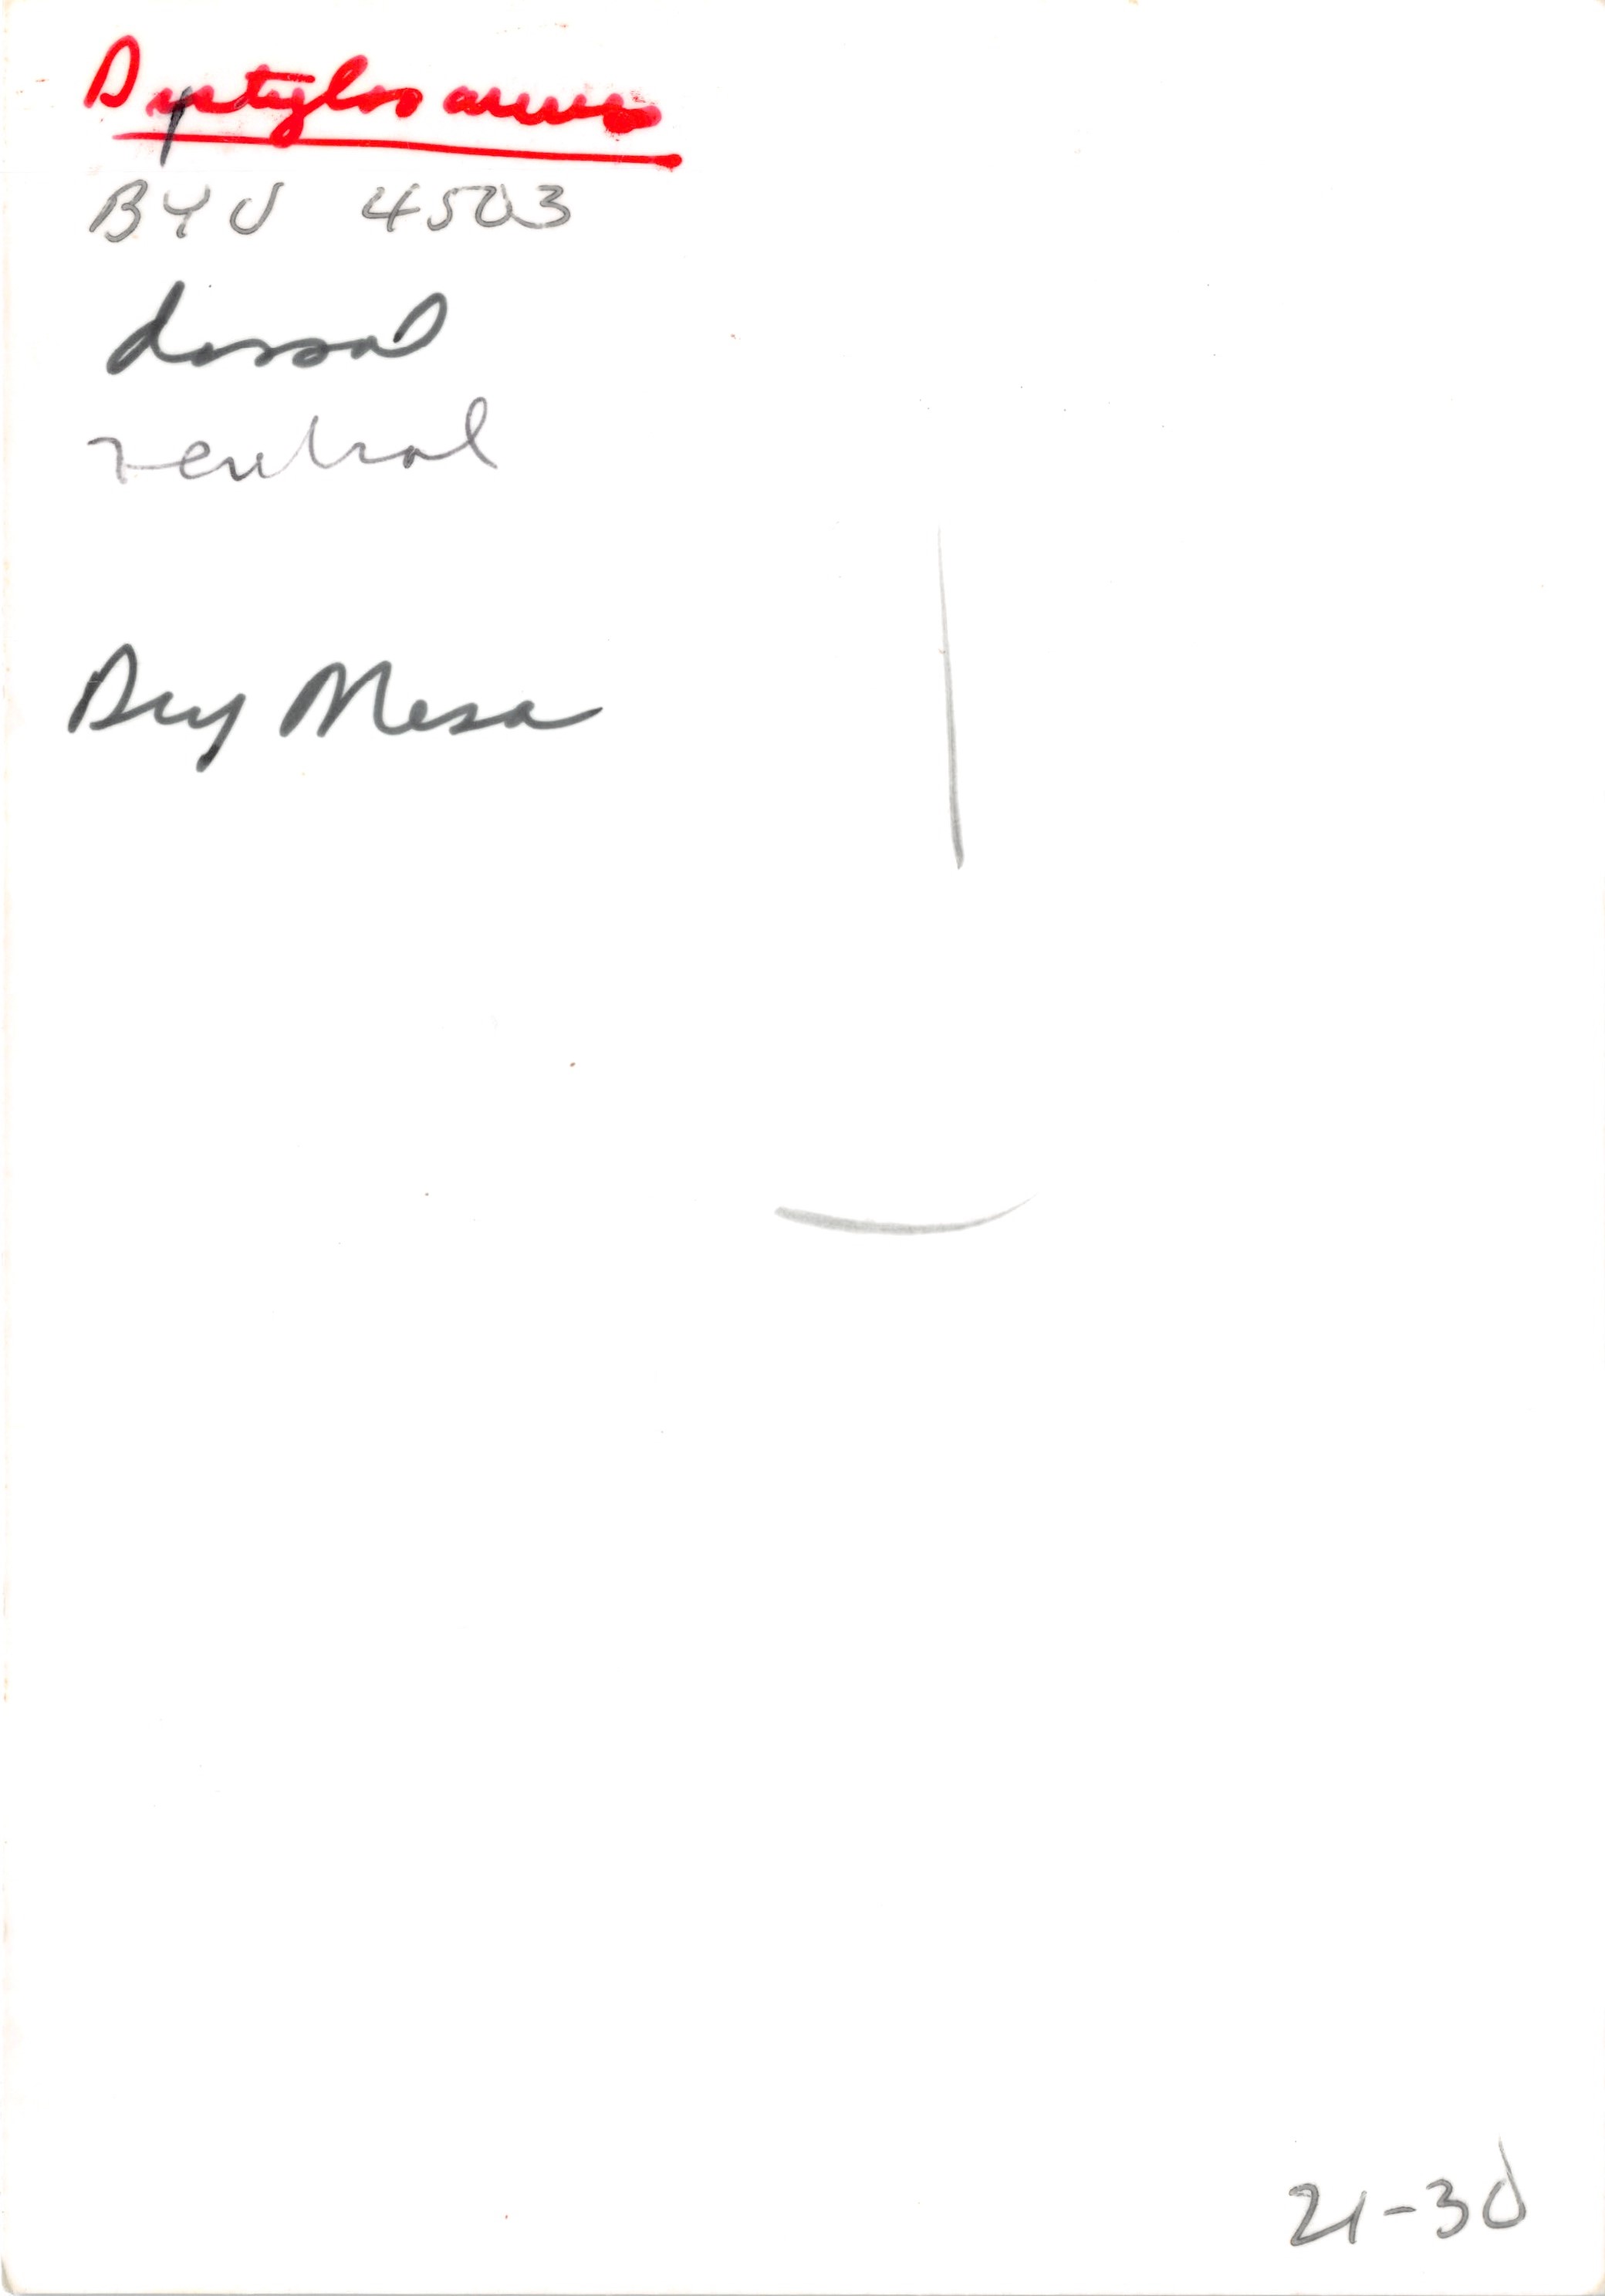 Dystylosaurus
BYU 4503
dorsal
ventral
Dry Mesa
21-30